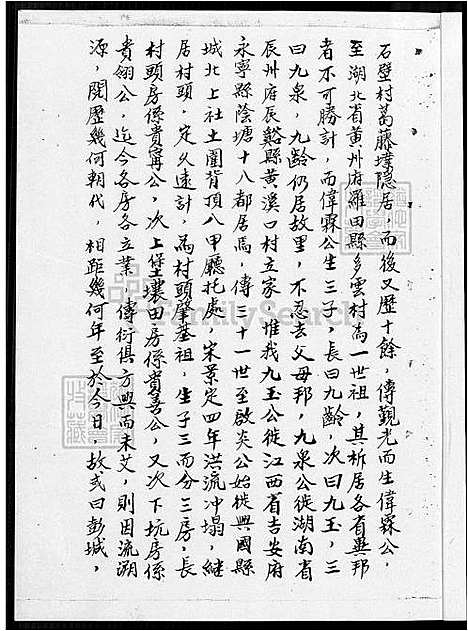 石壁村葛藤墣隐居，而後又歷十餘，傳觀光而生偉霖公，
至湖北省黃州府羅田縣多雲村為一世祖，其析居各省異邦
者不可勝計，而偉霖公生三子，長曰九齡，次曰九玉，三
曰九泉，九齡仍居故里，不忍去父母邦，九泉公徙湖南省
辰州府辰谿縣黃溪口村立家，惟我九玉公徙江西省吉安府
永寧縣蔭塘十八都居焉，傳三十一世至啟炎公始徙興國縣
城北上社土圍背頂八甲廳托處，宋景定四年洪流冲塌，継
居村頭，定久遠計，為村頭肇基祖，生子三而分三房，長
村頭房係貴寗公，次上堡壤田房係貴善公，又次下坑房係
貴翎公，迄今各房各立業，傳衍俱方興而未艾，則因流溯
源，閱歷幾何朝代，相距幾何年至於今日，故或曰彭城，
FamilySearch